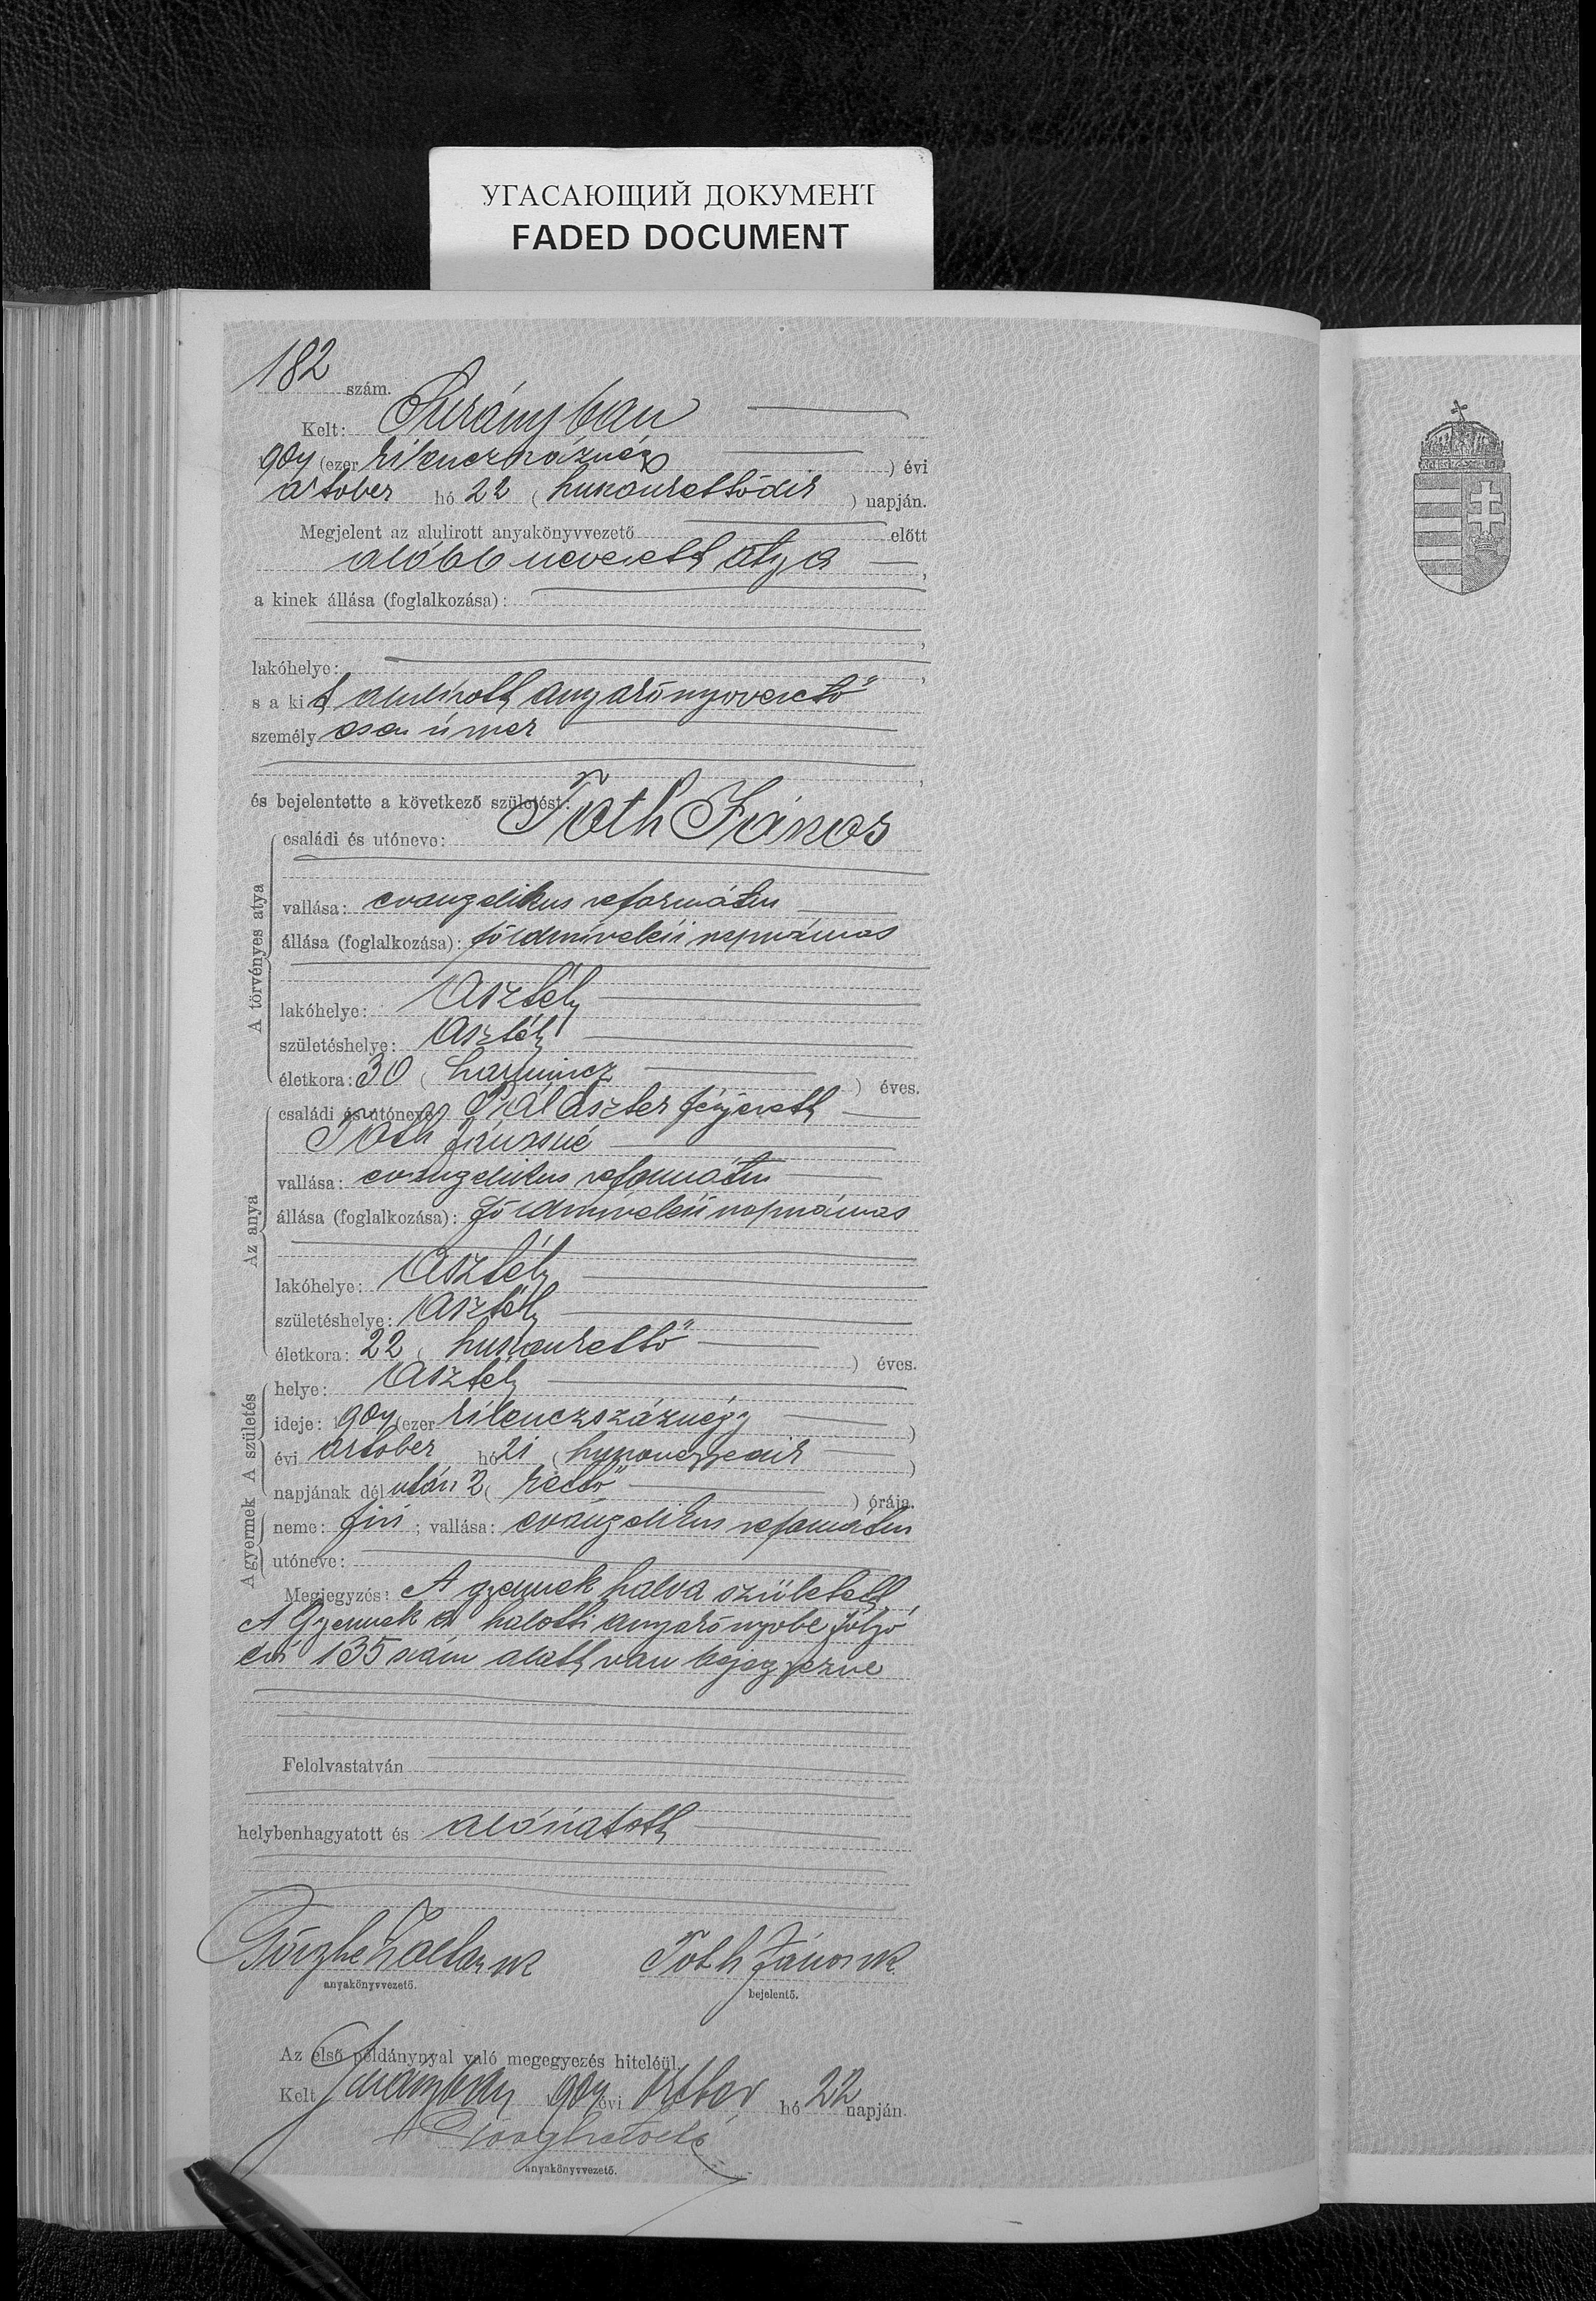 УГАСАЮЩИЙ ДОКУМЕНТ
FADED DOCUMENT
182 szám.
Kelt: Surányban
1904 (ezer kilenczszáznégy ) évi
október hó 22 ( huszonkettödik ) napján.
Megjelent az alulirott anyakönyvvezető előtt
alább nevezett atya ,
a kinek állása (foglalkozása):
,
lakóhelye: ,
s a kit alulirott anyakönyvvezető
személyesen ismer
,
és bejelentette a következő születést:
A törvényes atya
családi és utóneve: Tóth János
vallása: evangelikus református
állása (foglalkozása): földmivelési napszámos
lakóhelye: Asztély
születéshelye: Asztély
életkora: 30 ( harmincz ) éves.
Az anya
családi és utóneve: Erzsébet
Tóth Jánosné
vallása: evangelikus református
állása (foglalkozása): földmivelési napszámos
lakóhelye: Asztély
születéshelye: Asztély
életkora: 22 ( huszonkettő ) éves.
A születés
helye: Asztély
ideje: 1904 (ezer kilenczszáznégy )
évi október hó 21 ( huszonegyedik )
napjának dél után 2 ( kettő ) órája.
A gyermek
neme: fiú ; vallása: evángelikus református
utóneve:
Megjegyzés: A gyermek halva született,
A Gyermek a halotti anyakönyvbe folyó
évi 135 szám alatt van bejegyezve
Felolvastatván
helybenhagyatott és aláiratott
Zoltán mk
anyakönyvvezető.
Tóth János mk
bejelentő.
Az első példánynyal való megegyezés hiteléül.
Kelt Surányban 1904 évi október hó 22 napján.
anyakönyvvezető.